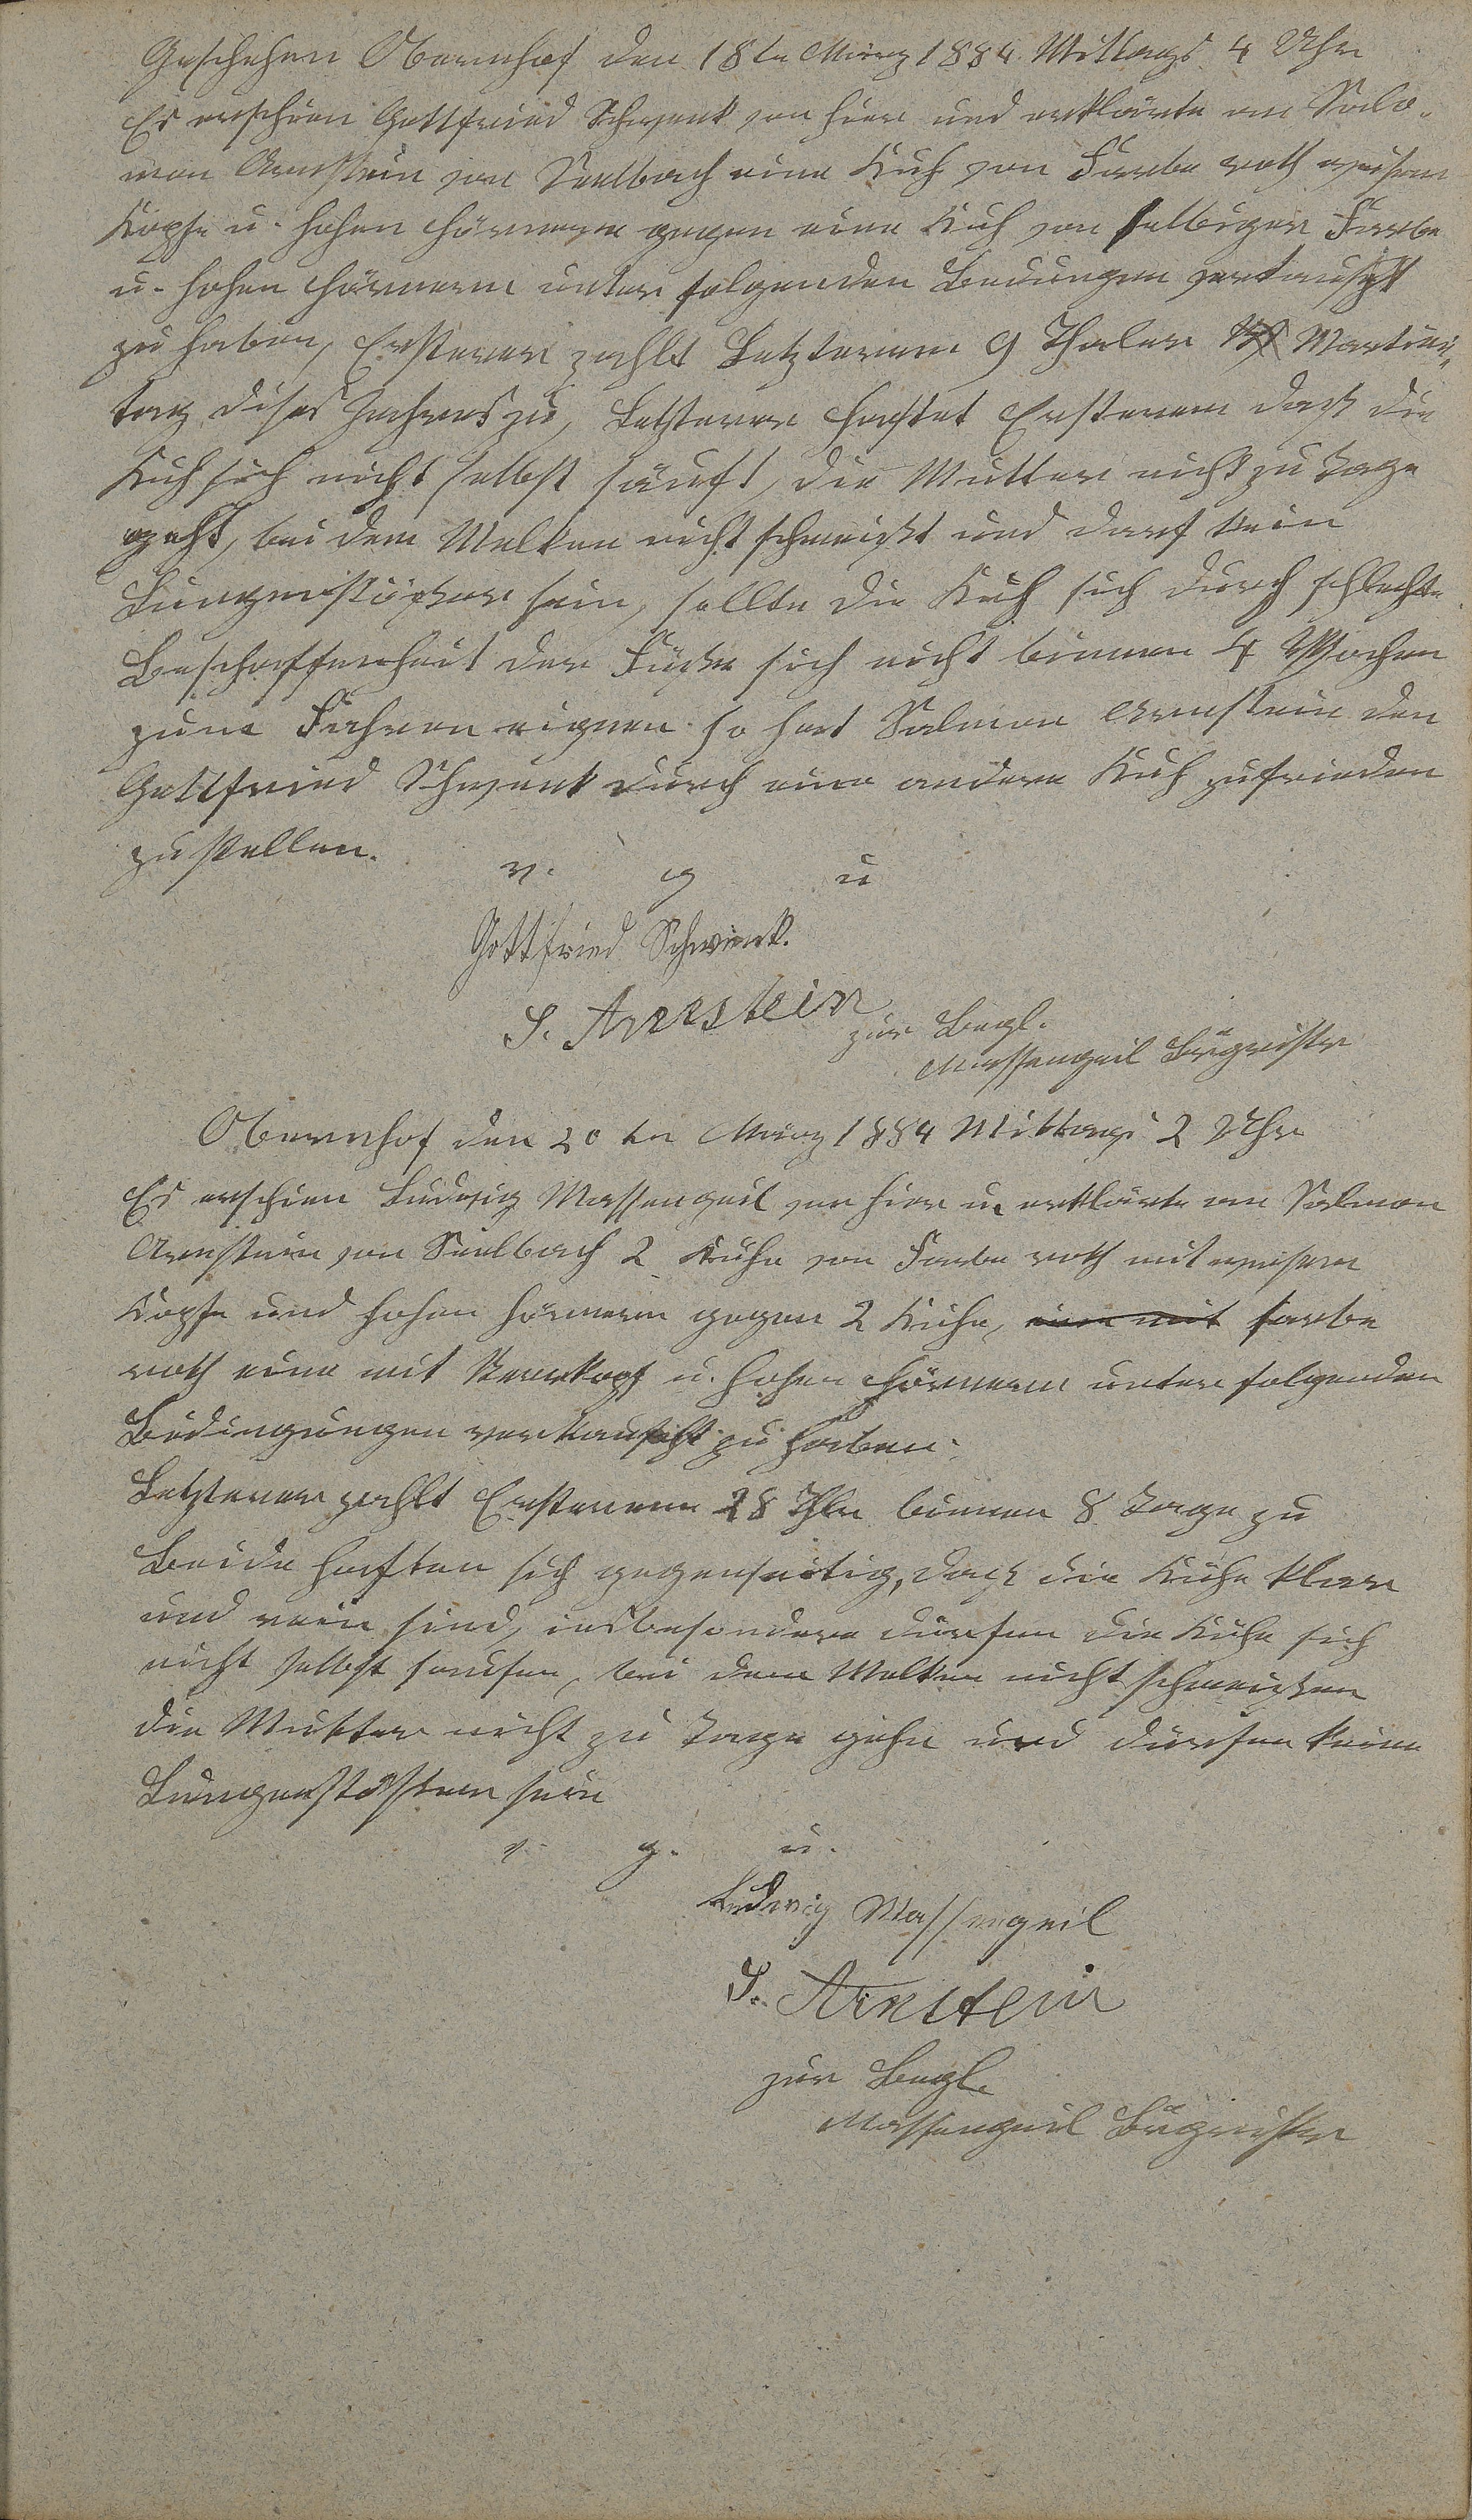 Geschehen Obernhof den 18ten März 1884 Mittags 4 Uhr
Es erschien Gottfried Schwenk von hier und erklärte an Salo-
mon Arnstein von Seelbach eine Kuh von Farbe roth weisem
Kopfe u. hohen Hörnern gegen eine Kuh von selbiger Farbe
u. hohen Hörnern unter folgenden Beuungen vertauscht
zu haben, Ersterer zahlt Letzterem 9 Thaler Martini-
tag dises Jahres zu, Letzterer haftet Ersterem daß die
Kuh sich nicht selbst säuft, die Mutter nicht zu Tage
geht, bei dem Melken nicht schmeißt und darf kein
Lungenstößer sein, sollte die Kuh sich durch schlechte
Beschaffenheit der Füße sich nicht binnen 4 Wochen
zum Fahren eignen so hat Salmon Arnstein den
Gottfried Schwenk durch eine andere Kuh zufrieden
zu stellen.
v. g u
Gottfried Schwenk.
S. Arnstein
zur Begl.
Massengeil Bürgmeistr
Obernhof den 20ten März 1884 Mittags 2 Uhr
Es erschien Ludwig Massengeil von hier u. erklärte an Salmon
Arnstein von Seelbach 2 Kühe von Farbe roth mit weisem
Kopfe und hohen Hörnern gegen 2 Kühe, eine mit farbe
roth eine mit Sternkopf u. hohen Hörnern unter folgenden
Bedingungen vertauscht zu haben.
Letzterer zahlt Ersterem 28 Thlr binnen 8 Tage zu
Beide haften sich gegenseitig, daß die Kühe klar
und rein sind, insbesondere dürfen die Kühe sich
nicht selbst saufen, bei dem Melken nicht schmeißen
die Mutter nicht zu Tage gehn und dürfen keine
Lungenstößer sein
v. g. u.
Ludwig Massengeil
S. Arnstein
zur Begl.
Massengeil Bürgmeistr